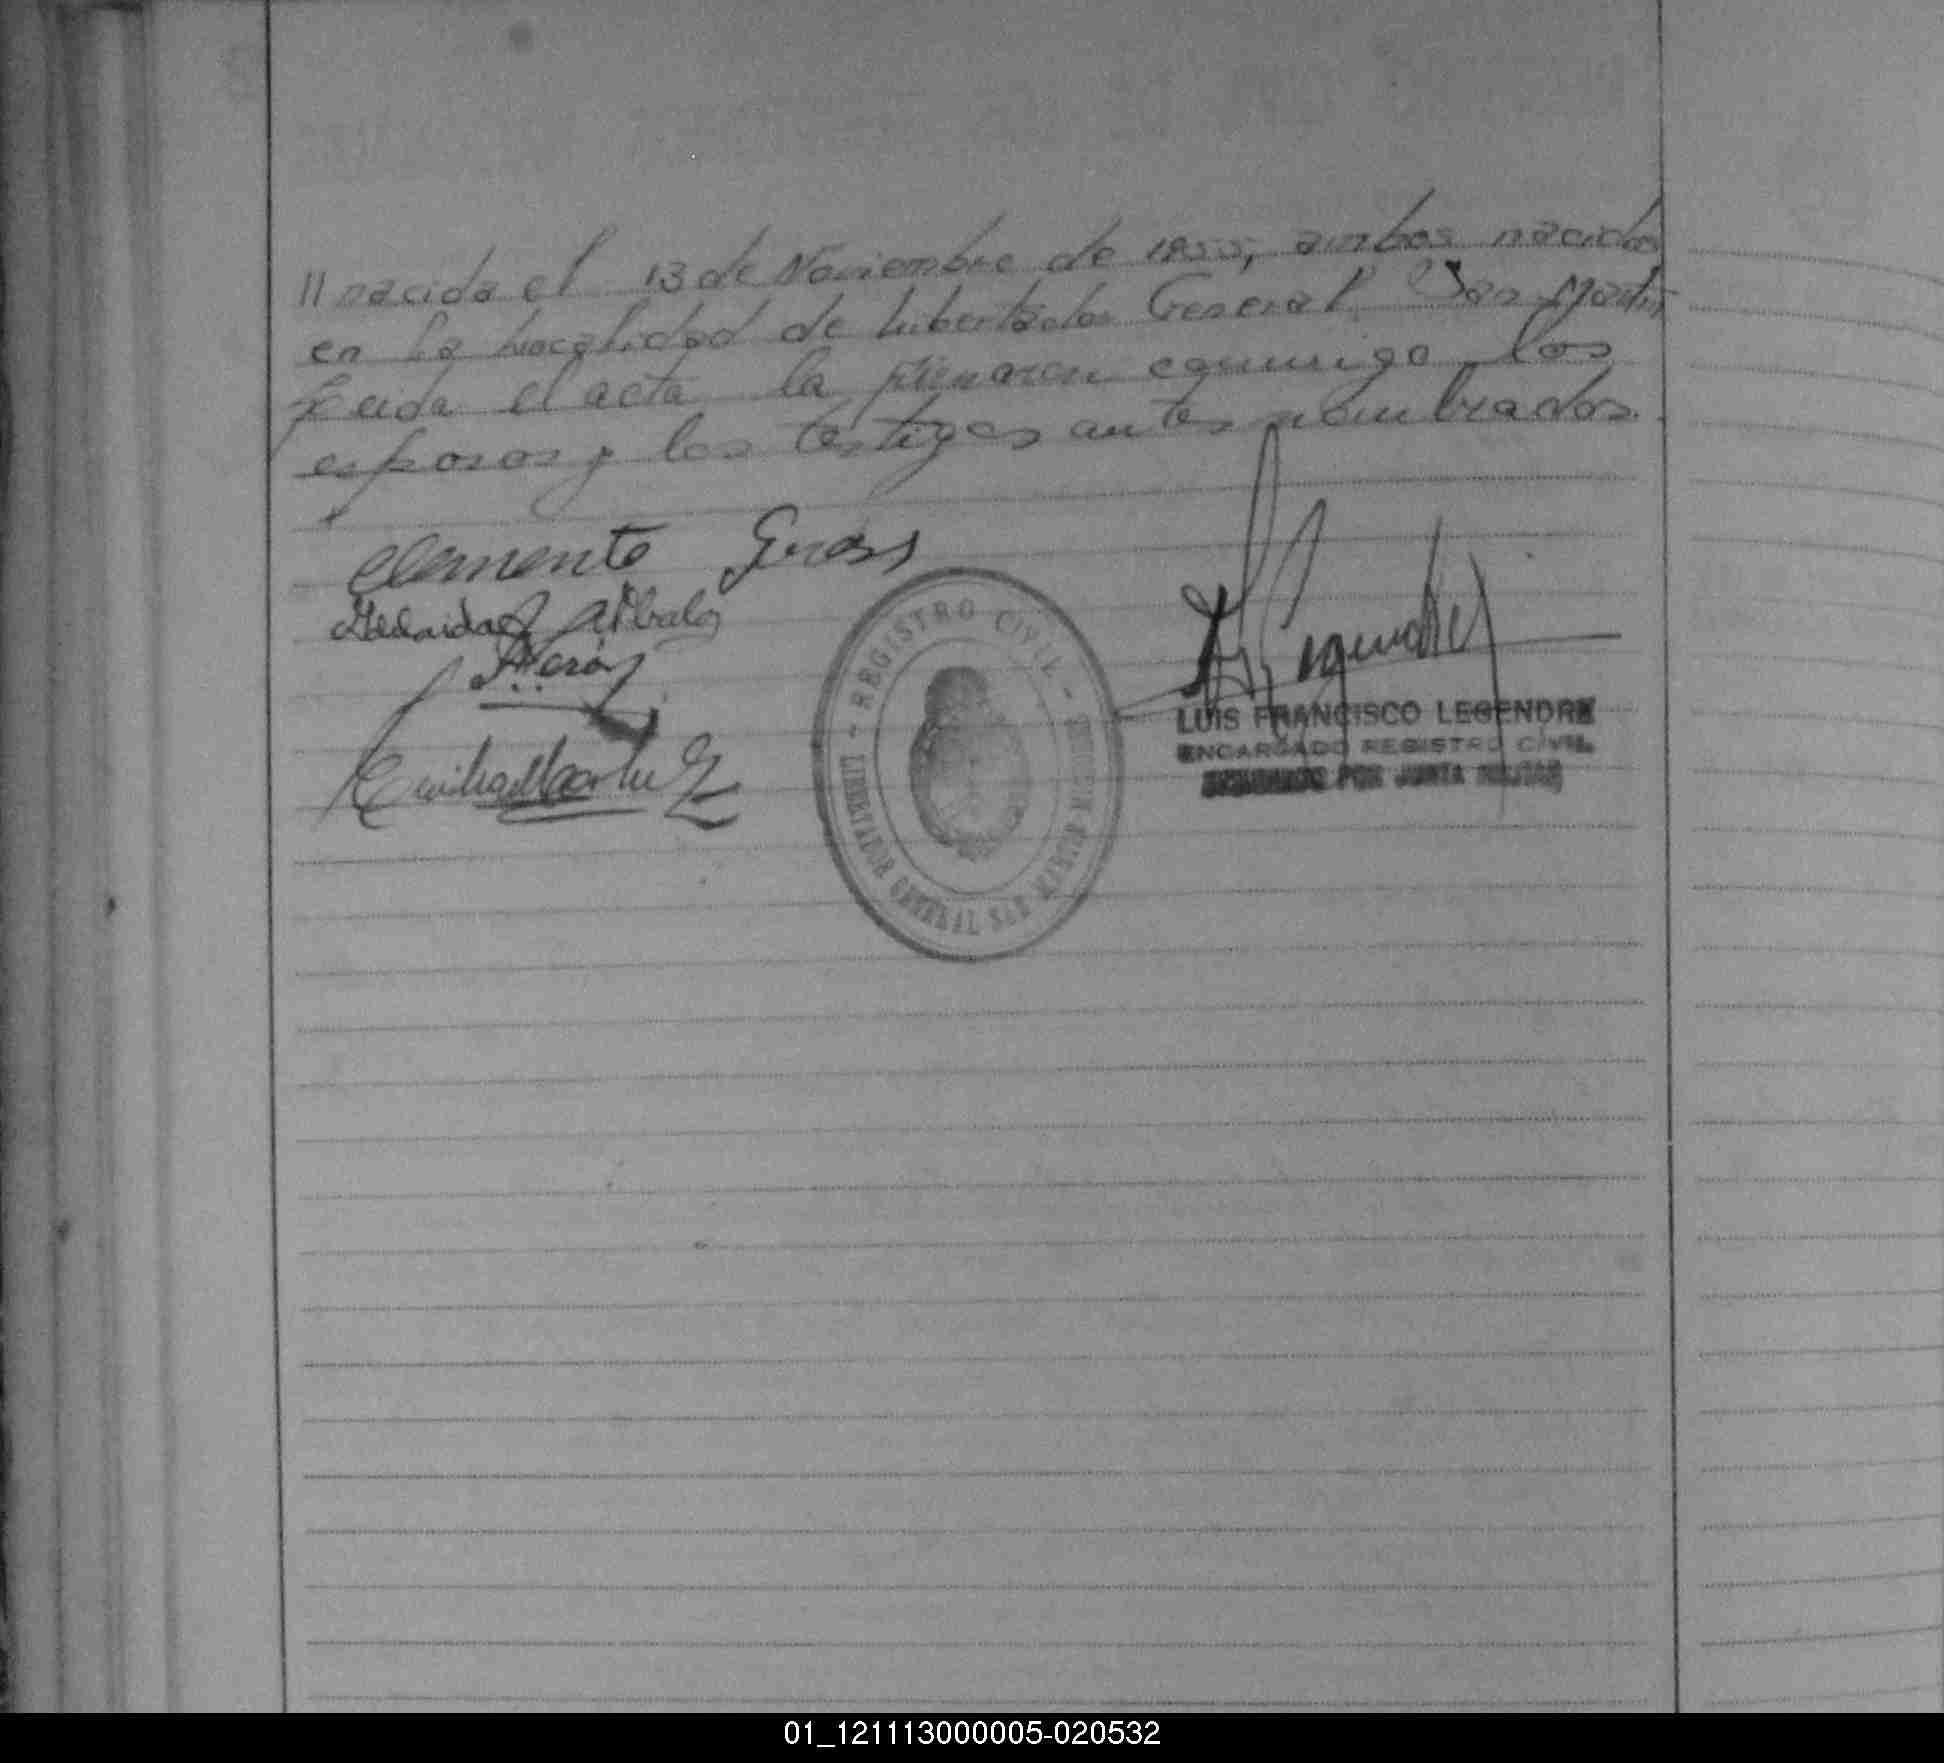 // nacida el 13 de Noviembre de 1955, ambos nacidos
en la Localidad de Libertador General San Martín
Leida el acta la firmaron conmigo los
esposos y los testigos antes nombrados.
Clemente Gross
LUIS FRANCISCO LEGENDRE
ENCARGADO REGISTRO CIVIL
POR JUNTA MILITAR
REGISTRO CIVIL
LIBERTADOR GENERAL SAN MARTIN
01_121113000005-020532